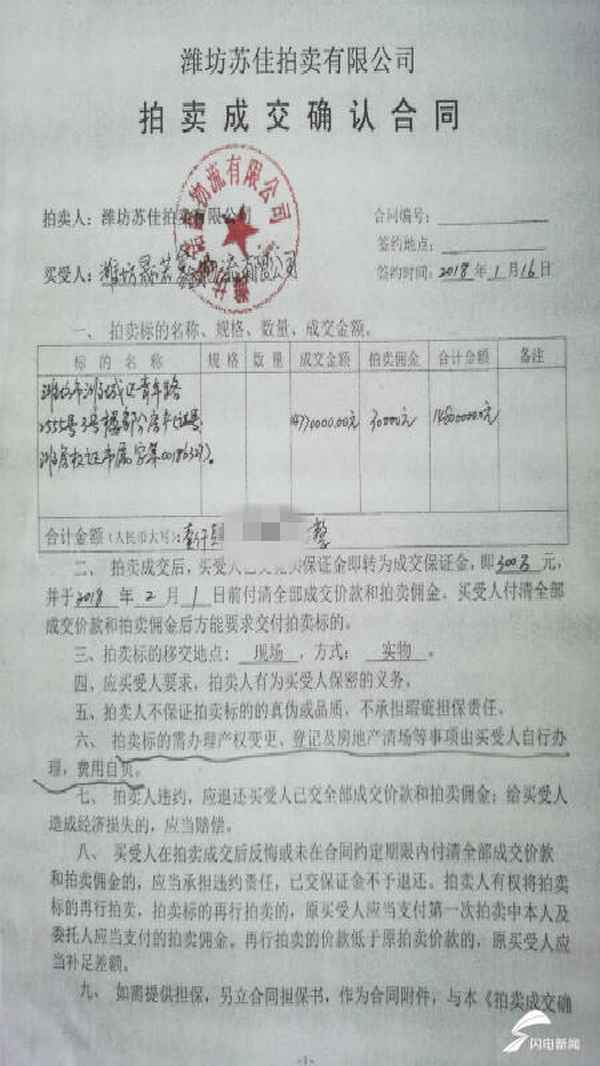 潍坊苏佳拍卖有限公司
拍卖成交确认合同
拍卖人：潍坊苏佳拍卖有限公司
合同编号：
签约地点：
买受人：潍坊 物流有限公司
签约时间：2018年1月16日
物流有限公司
一、拍卖标的名称、规格、数量、成交金额。
标的名称 规格 数量 成交金额 拍卖佣金 合计金额 备注
潍坊市潍城区青年路
2555号3号楼部分房产(证号
潍房权证市属字第00186327)。
14770000.00元 30000元 14800000元
合计金额（人民币大写）：壹仟 整
二、拍卖成交后，买受人已交竞买保证金即转为成交保证金，即300万元，
并于2018年2月1日前付清全部成交价款和拍卖佣金。买受人付清全部
成交价款和拍卖佣金后方能要求交付拍卖标的。
三、拍卖标的移交地点：现场，方式：实物。
四、应买受人要求，拍卖人有为买受人保密的义务。
五、拍卖人不保证拍卖标的的真伪或品质，不承担瑕疵担保责任。
六、拍卖标的需办理产权变更、登记及房地产清场等事项由买受人自行办
理，费用自负。
七、拍卖人违约，应退还买受人已交全部成交价款和拍卖佣金；给买受人
造成经济损失的，应当赔偿。
八、买受人在拍卖成交后反悔或未在合同约定期限内付清全部成交价款
和拍卖佣金的，应当承担违约责任，已交保证金不予退还。拍卖人有权将拍卖
标的再行拍卖，拍卖标的再行拍卖的，原买受人应当支付第一次拍卖中本人及
委托人应当支付的拍卖佣金。再行拍卖的价款低于原拍卖价款的，原买受人应
当补足差额。
九、如需提供担保，另立合同担保书，作为合同附件，与本《拍卖成交确
-1-
闪电新闻